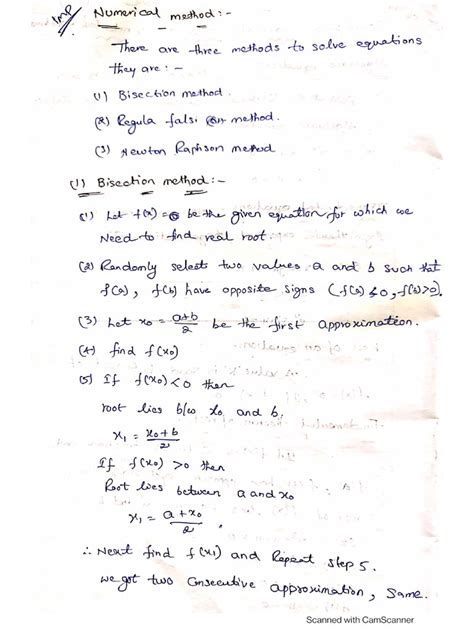 Imp Numerical method :-
There are three methods to solve equations
they are :-
(1) Bisection method.
(2) Regula falsi method.
(3) Newton Raphson method
(1) Bisection method :-
(1) Let f(x) = 0 be the given equation for which we
need to find real root.
(2) Randomly selects two values a and b such that
f(a), f(b) have opposite signs (f(a) ≤ 0, f(b) > 0).
(3) Let x₀ = a+b/2 be the first approximation.
(4) find f(x₀)
(5) If f(x₀) < 0 then
root lies b/w x₀ and b.
x₁ = x₀+b/2
If f(x₀) > 0 then
Root lies between a and x₀
x₁ = a+x₀/2,
∴ Next find f(x₁) and Repeat step 5.
we got two consecutive approximation, same.
Scanned with CamScanner